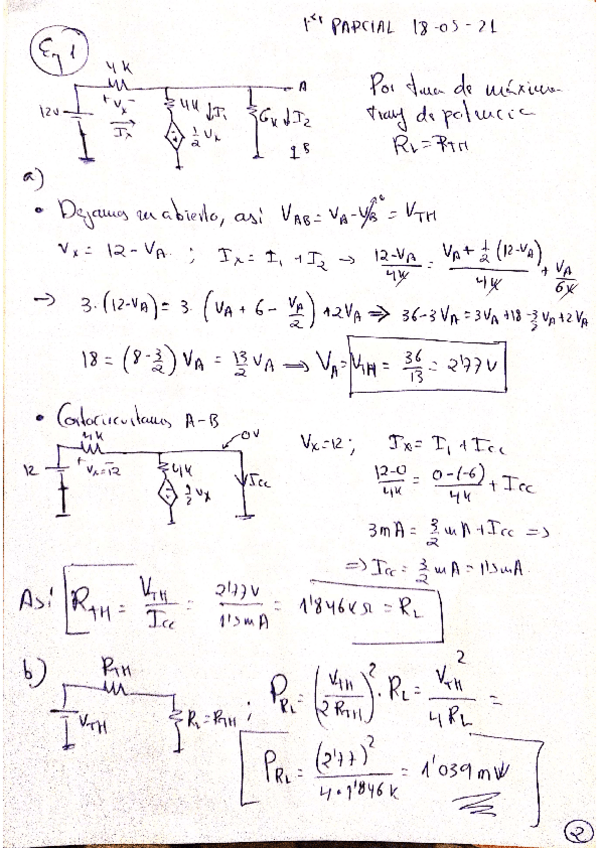 1er PARCIAL 18-05-21
Ej 1
4K
A
12V
+ Vx -
Ix
4K ↓I1
6K ↓I2
1/2 Vx
B
Por tma de máxima
transf de potencia
RL = RTH
a)
• Dejamos en abierto, así VAB = VA - VB = VTH
0
Vx = 12 - VA ; Ix = I1 + I2 → (12-VA)/4K = (VA + 1/2 (12-VA))/4K + VA/6K
→ 3·(12-VA) = 3·(VA + 6 - VA/2) + 2VA ⇒ 36-3VA = 3VA+18-3/2 VA+2VA
18 = (8-3/2) VA = 13/2 VA ⇒ VA = VTH = 36/13 = 2'77V
• Cortocircuitamos A-B
4K
0V
12
+ Vx=12 -
4K
1/2 Vx
Icc
Vx=12 ; Ix = I1 + Icc
(12-0)/4K = (0-(-6))/4K + Icc
3mA = 3/2 mA + Icc ⇒
⇒ Icc = 3/2 mA = 1'5mA
Así RTH = VTH/Icc = 2'77V/1'5mA = 1'846KΩ = RL
b)
RTH
VTH
RL = RTH ; PRL = (VTH/2RTH)² · RL = VTH²/4RL =
PRL = (2'77)²/(4·1'846K) = 1'039mW
2